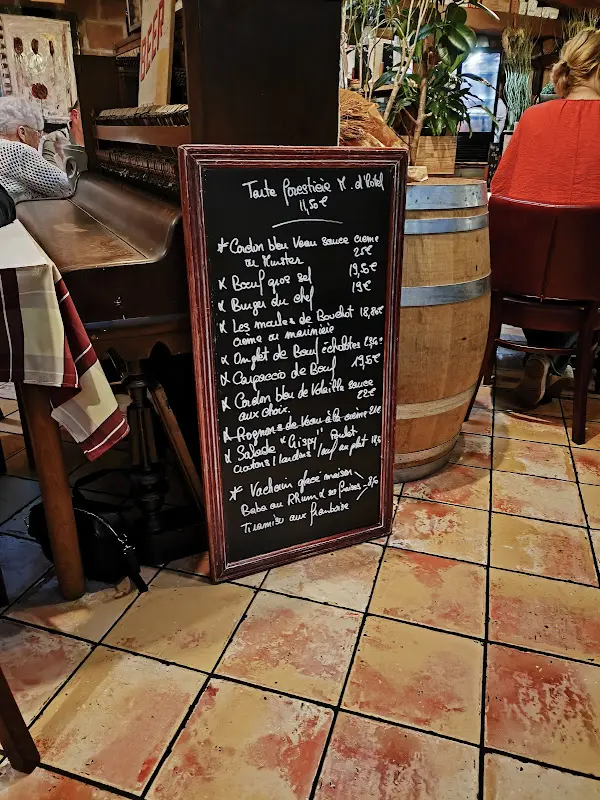 BEER
Tarte forestière M. d'hôtel
11,50€
* Cordon bleu Veau sauce crème
ou Munster 25€
x Boeuf gros sel 19,50€
x Burger du chef 19€
x Les moules de Bouchot 18,80€
crème ou marinière
x Onglet de Boeuf échalotes
x Carpaccio de Boeuf 19,50€
x Cordon bleu de Volaille sauce
aux choix.
x Rognons de Veau à la crème 21€
x Salade "Crispy" Poulet
croutons / lardons / œuf au plat
* Vacherin glacé maison
Baba au Rhum & ses fraises
Tiramisu aux framboise